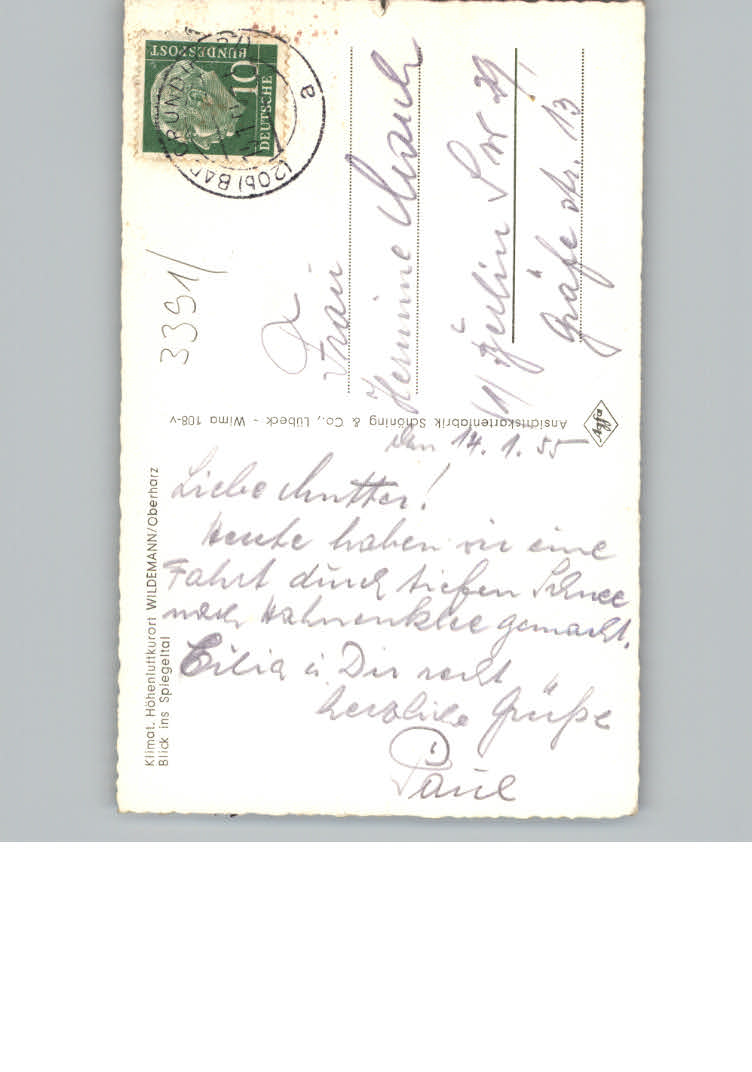 Klimat. Höhenluftkurort WILDEMANN/Oberharz
Blick ins Spiegeltal
den 14. 1. 55
Liebe Mutter!
Heute haben wir eine
Fahrt durch tiefen Schnee
nach Hahnenklee gemacht.
Cilia u Dir recht
herzliche Grüße
Paul
Ansichtskartenfabrik Schöning & Co., Lübeck - Wima 108-v
Agfa
DEUTSCHE
BUNDESPOST
10
(20b) BAD GRUND
a
3391/
Frau
Hermine
1/ Berlin SW 29,
Gräfe str. 13